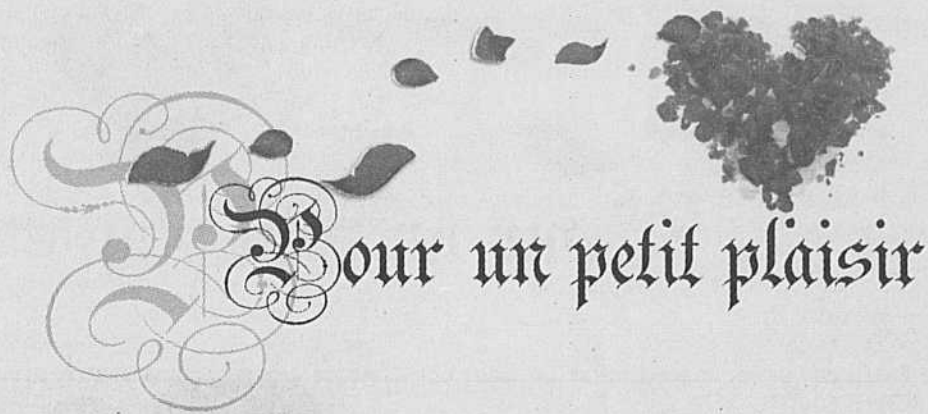 Pour un petit plaisir